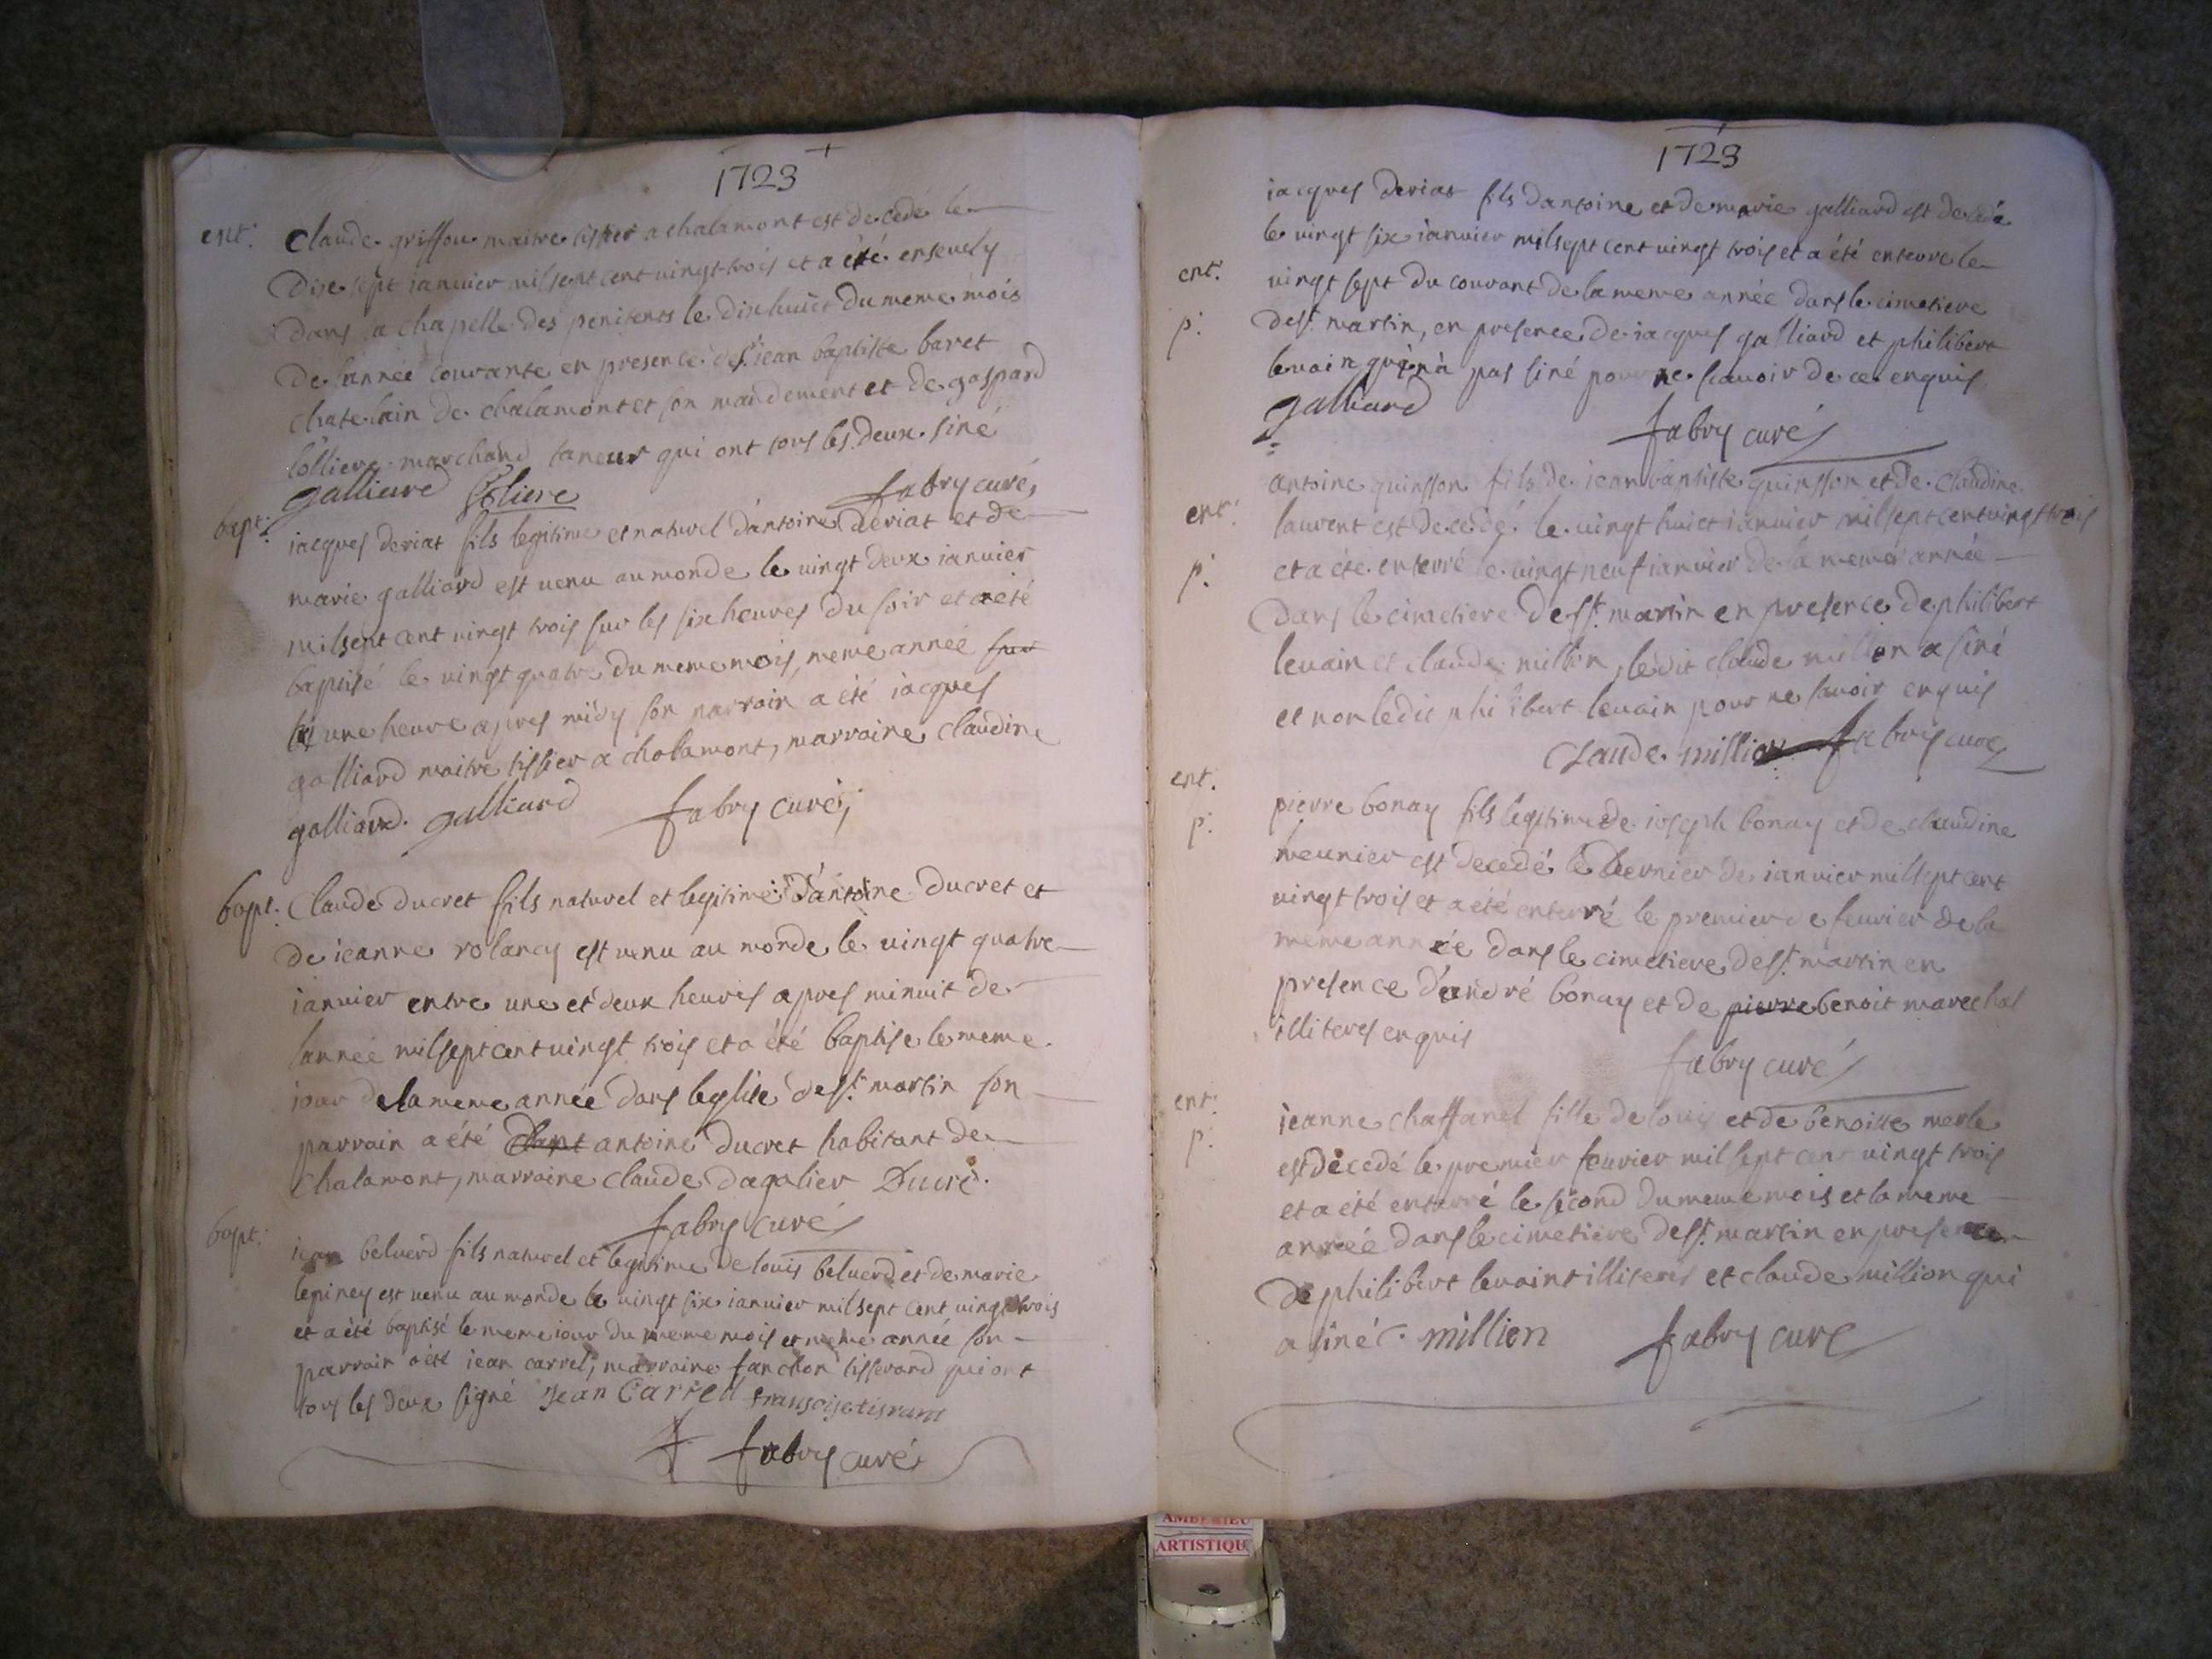 1723
ent: Claude griffon maitre tissier a chalamont est decedé le
dix sept ianvier mil sept cent vingt trois et a été ensevely
dans la chapelle des penitents le dixhuict du meme mois
de lannée courante en presence de sr. iean baptiste baret
chatelain de chalamont et son mandement et de gaspard
lolliere marchand taneur qui ont tous les deux siné
galliard loliere fabry curé
bapt: iacques deriat fils legitime et naturel dantoine deriat et de
marie galliard est venu au monde le vingt deux ianvier
mil sept cent vingt trois sur les six heures du soir et a été
baptisé le vingt quatre du meme mois, meme année sur
les une heure apres midy son parrain a été iacques
galliard maitre tissier a chalamont, marraine claudine
galliard. galliard fabry curé
bapt. Claude ducret fils naturel et legitime d'antoine ducret et
de ieanne rolancy est venu au monde le vingt quatre
ianvier entre une et deux heures apres minuit de
lannée mil sept cent vingt trois et a été baptise le meme
iour de la meme année dans leglise de st. martin son
parrain a été antoine ducret habitant de
chalamont, marraine claude dagalier Ducré.
fabry curé
bapt: iean beluerd fils naturel et legitime de louis beluerd et de marie
lepiney est venu au monde le vingt six ianvier mil sept cent vingt trois
et a été baptisé le meme iour du meme mois et meme année son
parrain a été iean carrel, marraine fanchon tisserand qui ont
tous les deux signé Jean Carrell fransoise tisrant
fabry curé
1723
iacques deriat fils dantoine et de marie galliard est decedé
le vingt six ianvier mil sept cent vingt trois et a été enterre le
ent. vingt sept du courant de la meme année dans le cimetiere
p. de st. martin, en presence de iacques galliard et philibert
levain qui n'a pas siné pour ne scavoir de ce enquis
galliard
fabry curé
antoine quinsson fils de iean baptiste quinsson et de claudine
ent: laurent est decedé le vingt huict ianvier mil sept cent vingt trois
p. et a été enterré le vingt neuf ianvier de la meme année
dans le cimetiere de st. martin en presence de philibert
levain et claude million, ledit claude million a siné
et non ledit philibert levain pour ne savoir enquis
claude million fabry curé
ent. pierre bonay fils legitime de ioseph bonay et de claudine
p. meunier est decedé le dernier de ianvier mil sept cent
vingt trois et a été enterré le premier de fevrier de la
meme année dans le cimetiere de st. martin en
presence d'andré bonay et de pierre benoit marechal
illiteres enquis
fabry curé
ent: ieanne chaffanel fille de louis et de benoitte merle
p. est decedé le premier fevrier mil sept cent vingt trois
et a été enterré le second du meme mois et la meme
année dans le cimetiere de st. martin en presence
de philibert levaint illiteres et claude million qui
a siné C. million fabry curé
AMBERIEU
ARTISTIQU